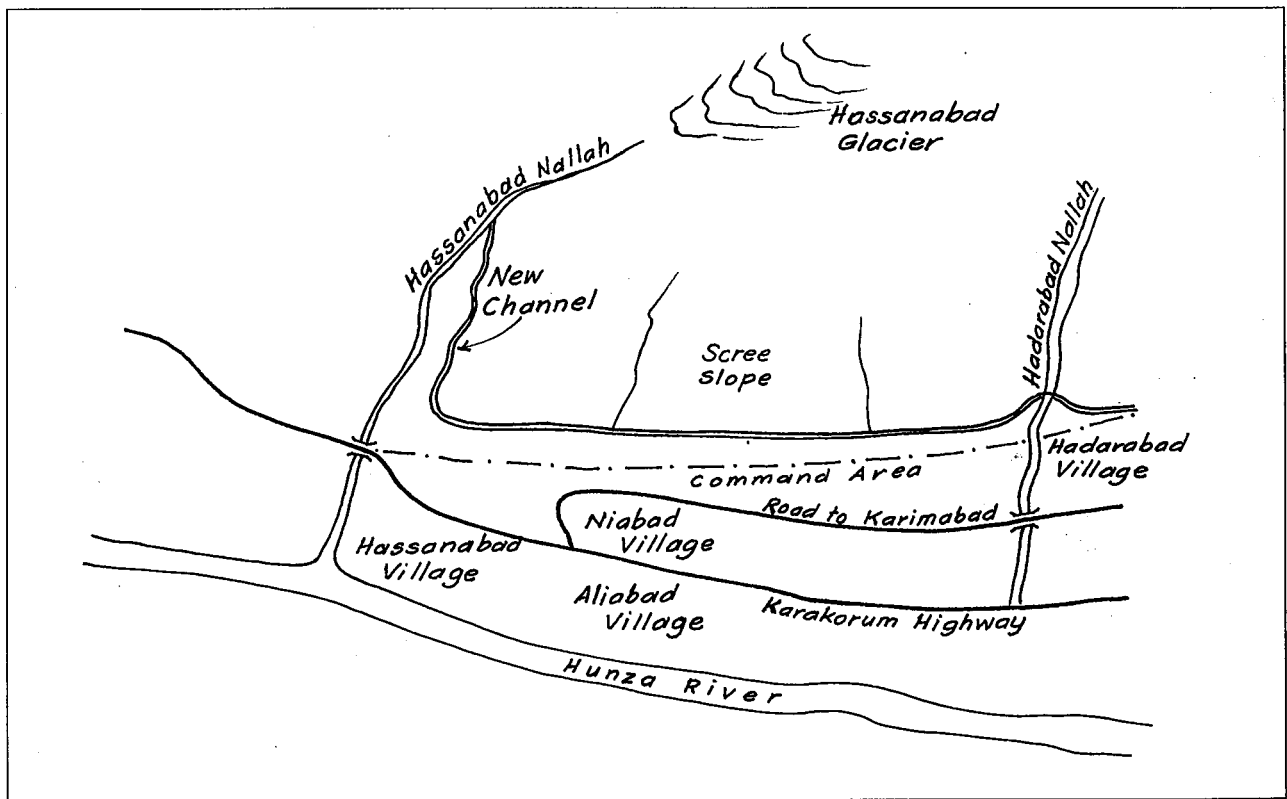 Hassanabad
Glacier
Hassanabad Nallah
Hadarabad Nallah
New
Channel
Scree
Slope
Hadarabad
Village
Command Area
Road to Karimabad
Niabad
Village
Hassanabad
Village
Aliabad
Village
Karakorum Highway
Hunza River